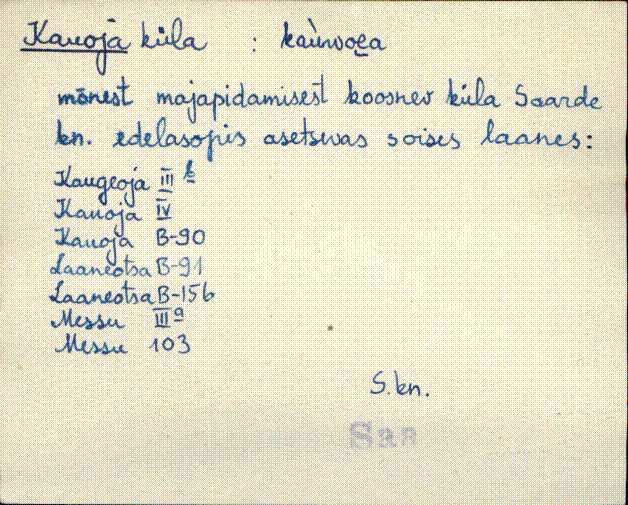 Kauoja küla : kaùwoea
mõnest majapidamisest koosnev küla Saarde
kn. edelasopis asetsevas soises laanes:
Kaugeoja III b
Kauoja IV
Kauoja B-90
Laaneotsa B-91
Laaneotsa B-156
Messu III a
Messu 103
S. kn.
Saa